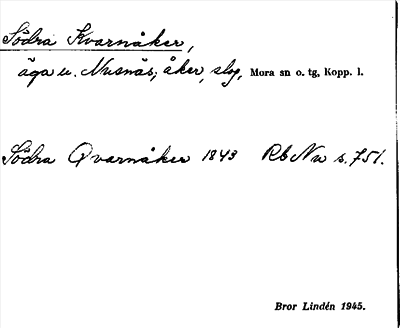 Södra Kvarnåker,
äga u. Nusnäs; åker, slog, Mora sn o. tg, Kopp. l.
Södra Qvarnåker 1843 Rb Nu s. 751.
Bror Lindén 1945.